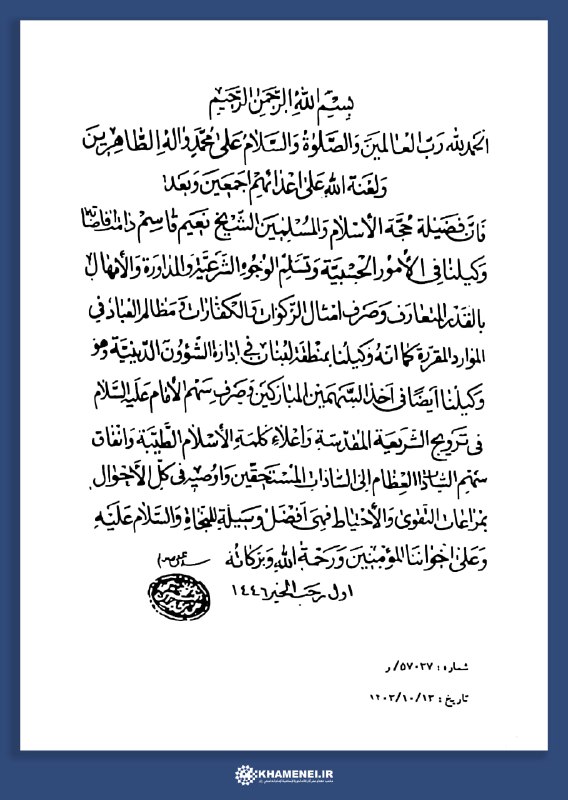 بِسْمِ اللهِ الرَّحْمنِ الرَّحيمِ
الحمدلله رَبّ العالمينَ وَالصَّلوةُ وَالسَّلامُ عَلى مُحمّدٍ وآلِهِ الطّاهِرينَ
وَلعْنةُ اللهِ عَلى أعْدائهِم أجمَعينَ وَبَعدُ
فَانّ فَضيلةَ حُجّةِ الأسْلام وَالمُسْلِمينَ الشّيخ نَعيم قاسِم دامَت افاضاته
وَكيلُنا في الأمُورِ الحِسْبِيّةِ وَتسَلّمِ الوُجُوهِ الشّرْعيّةِ وَالمُداوَرةِ وَالأمْهالِ
بِالقَدْرِ المُتعارَف وَصَرفِ امْثالِ الزّكواتِ وَالكفّاراتِ وَمَظالِم العِبادِ في
المَوارد المُقرّرة كما انهُ وَكيلُنا بمَنطقة لُبنان في ادارَة الشّؤُون الدّينيّة وَهوَ
وَكيلُنا ايضًا في اخذ السّهمَين المُبارَكين وَصَرفِ سَهم الأمَام عَليهِ السَّلام
في تَرويج الشّريعَة المُقدّسَة وَاعْلاءِ كلِمَة الأسْلام الطّيّبَة وَانفَاق
سَهْم السّاداتِ العِظام إلى السّاداتِ المُسْتحقّين وَاُوصيهِ في كلّ الأحْوال
بمُراعَات التّقوَى وَالأحْتياط فهيَ أفضَلُ وَسيلَة للنَجَاة وَالسّلام عَليْهِ
وَعَلى اخْوانِنا المُؤمِنينَ وَرَحمَةُ اللهِ وَبَرَكاتُهُ
اول رجب الخير ١٤٤٦
شماره : ۵۷۰۲۷/ر
تاریخ : ۱۴۰۳/۱۰/۱۳
KHAMENEI.IR